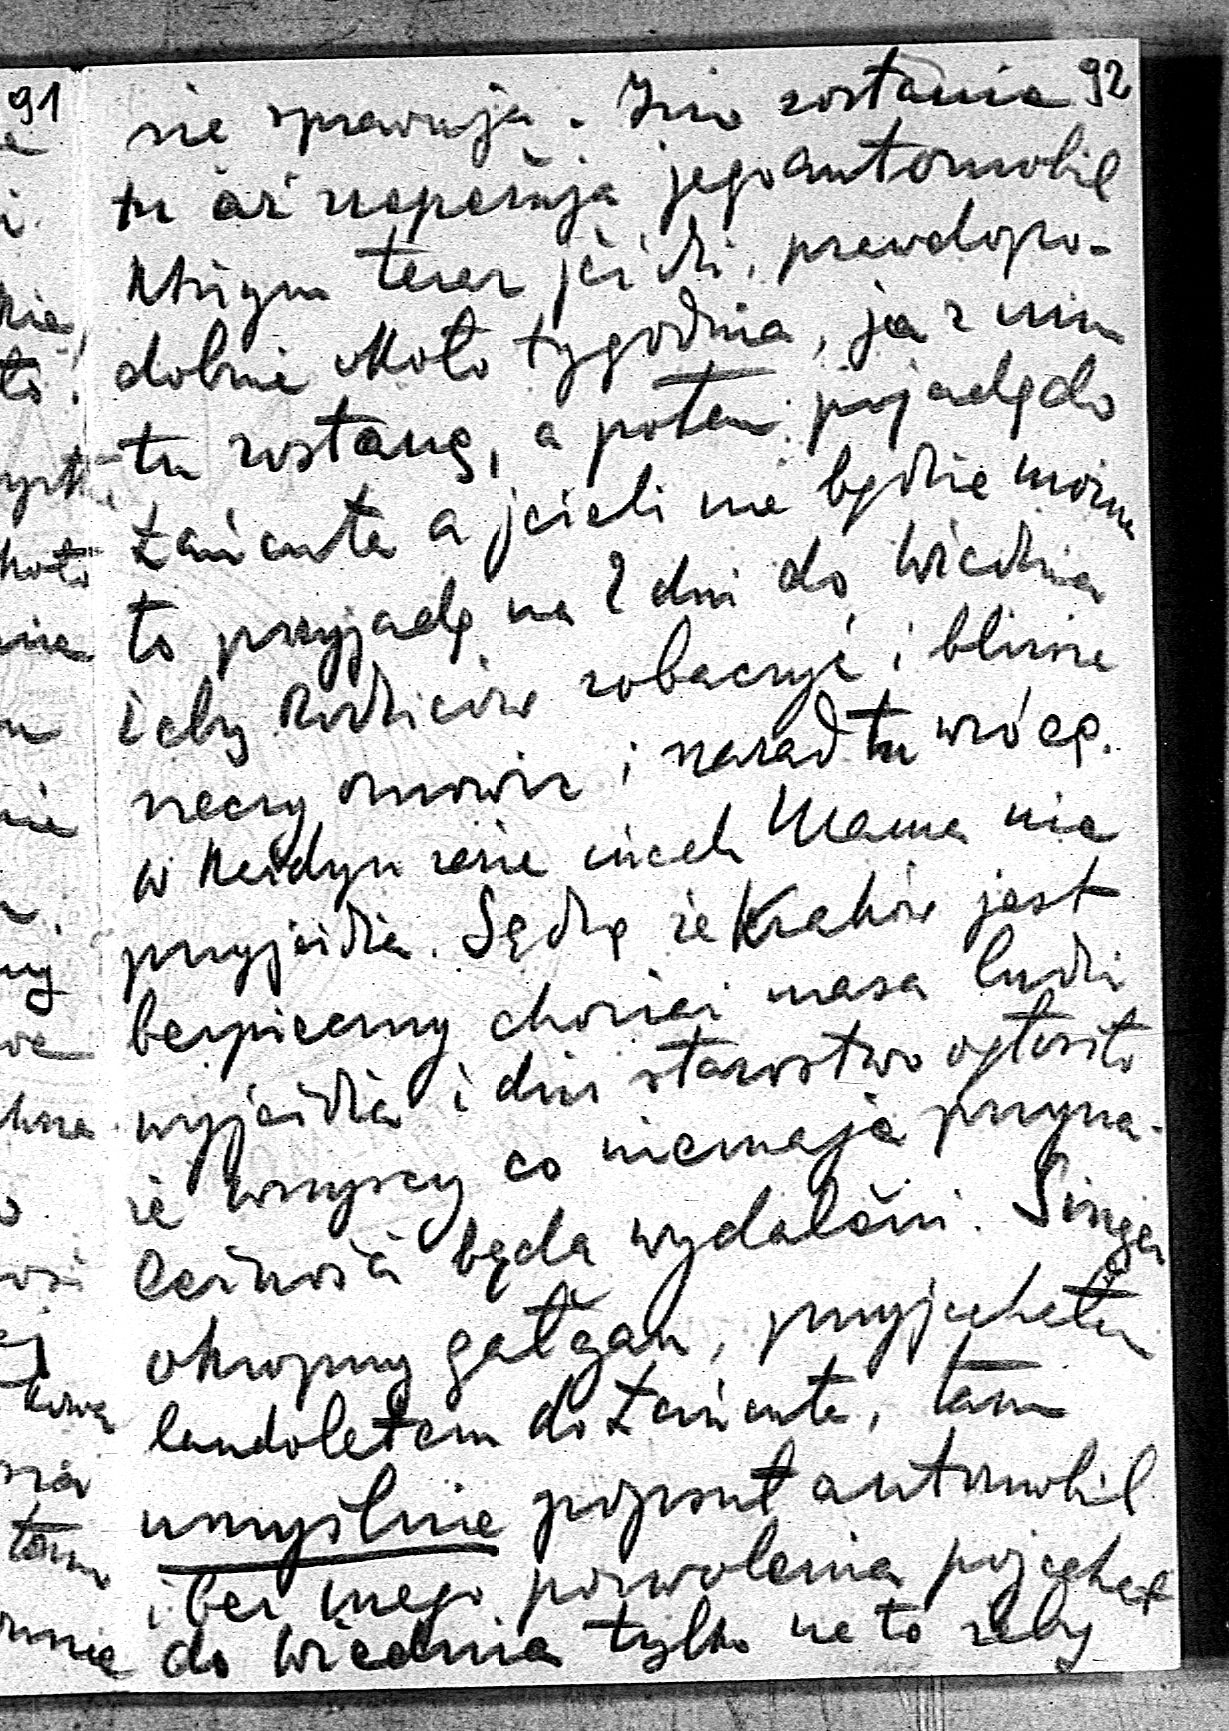 92
się sprawują. Imo zostania
tu aż naperują jego automobil
którym teraz jeździ, prawdopo-
dobnie około tygodnia, ja z nim
tu zostanę, a potem pojadę do
Łańcuta a jeżeli nie będzie można
to przyjadę na 2 dni do Wiednia
żeby Rodziców zobaczyć i bliższe
rzeczy omówić i nazad tu wrócę.
W każdym razie niech Mama nie
przyjeżdża. Sądzę że Kraków jest
bezpieczny chociaż masa ludzi
wyjeżdża i dziś starostwo ogłosiło
że wszyscy co niemają przyna-
leżność będą wydaleni. Singer
okropny gałgan, przyjechał
landoletem do Łańcuta, tam
umyślnie popsuł automobil
i bez mego pozwolenia pojechał
do Wiednia tylko na to żeby
91